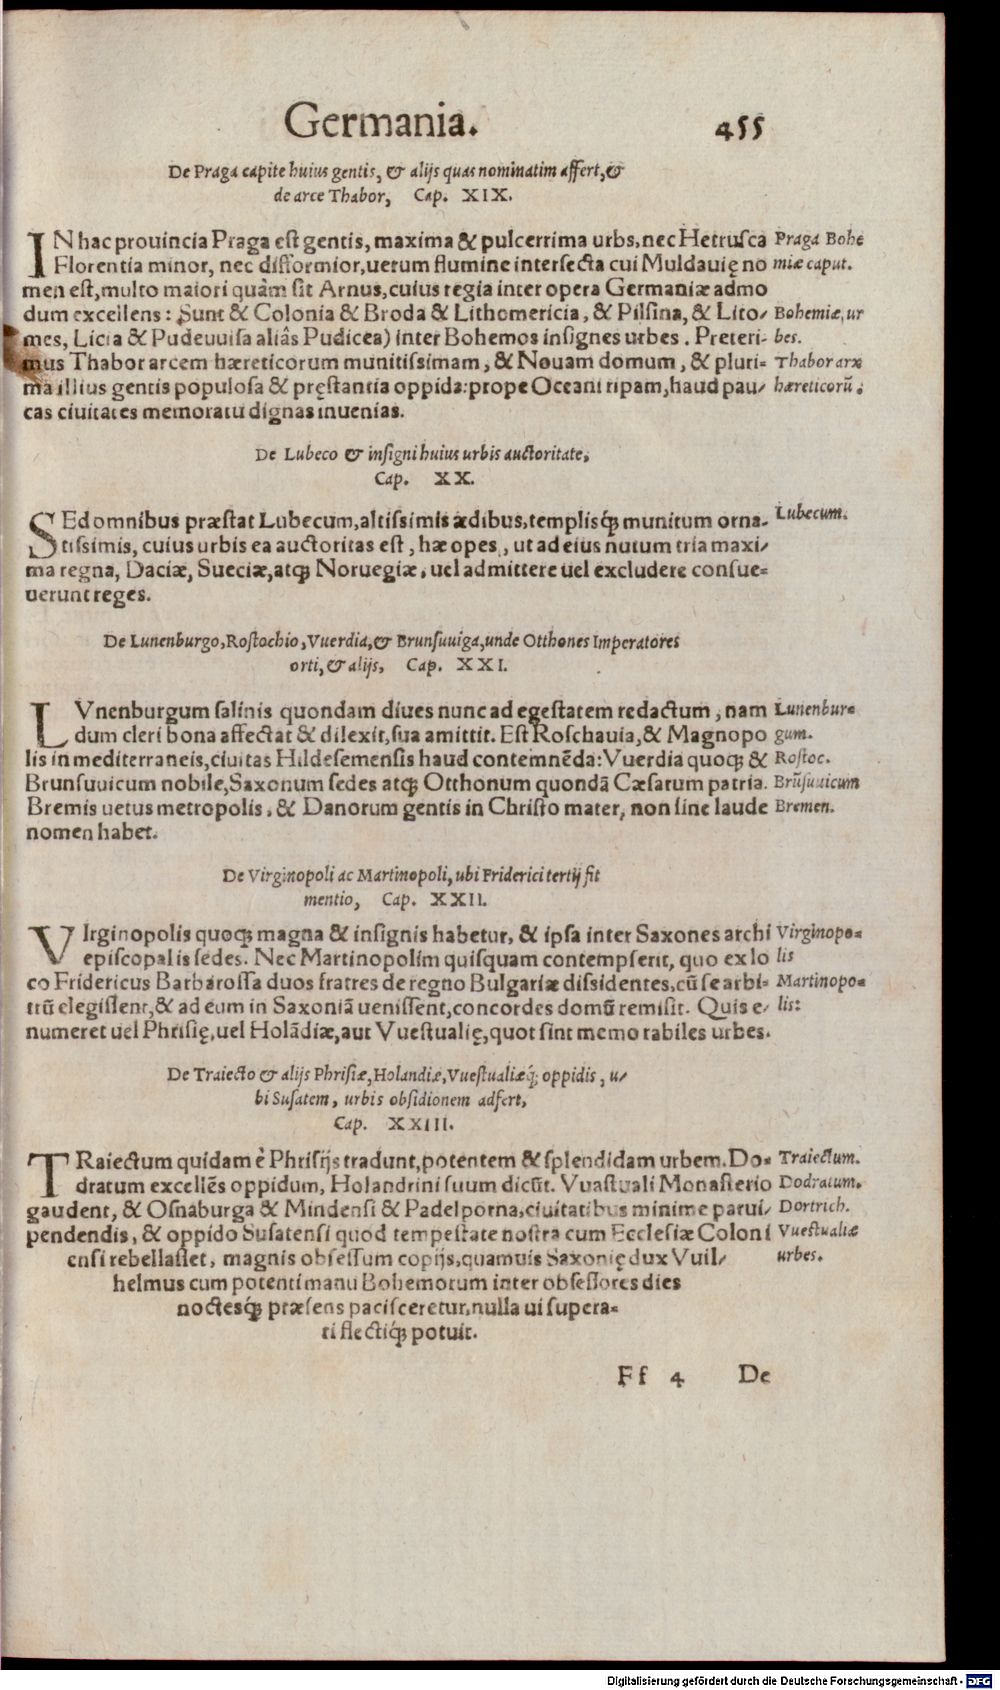 Germania. 455
De Praga capite huius gentis, & alijs quas nominatim affert, &
de arce Thabor, Cap. XIX.
IN hac prouincia Praga est gentis, maxima & pulcerrima urbs, nec Hetrusca Praga Bohe
Florentia minor, nec difformior, uerum flumine intersecta cui Muldauię no miæ caput.
men est, multo maiori quàm sit Arnus, cuius regia inter opera Germaniæ admo
dum excellens: Sunt & Colonia & Broda & Lithomericia, & Pilsina, & Lito/ Bohemiæ, ur
mes, Licia & Pudeuuisa aliâs Pudicea) inter Bohemos insignes urbes. Preteri- bes.
mus Thabor arcem hæreticorum munitissimam, & Nouam domum, & pluri- Thabor arx
ma illius gentis populosa & pręstantia oppida: prope Oceani ripam, haud pau/ hæreticorũ.
cas ciuitates memoratu dignas inuenias.
De Lubeco & insigni huius urbis auctoritate,
Cap. XX.
SEd omnibus præstat Lubecum, altissimis ædibus, templisq́; munitum orna- Lubecum.
tissimis, cuius urbis ea auctoritas est, hæ opes, ut ad eius nutum tria maxi/
ma regna, Daciæ, Sueciæ, atq; Noruegiæ, uel admittere uel excludere consue=
uerunt reges.
De Lunenburgo, Rostochio, Vuerdia, & Brunsuuiga, unde Otthones Imperatores
orti, & alijs, Cap. XXI.
LVnenburgum salinis quondam diues nunc ad egestatem redactum, nam Lunenbur=
dum cleri bona affectat & dilexit, sua amittit. Est Roschauia, & Magnopo gum.
lis in mediterraneis, ciuitas Hildesemensis haud contemnẽda: Vuerdia quoq; & Rostoc.
Brunsuuicum nobile, Saxonum sedes atq; Otthonum quondã Cæsarum patria. Brũsuuicum
Bremis uetus metropolis, & Danorum gentis in Christo mater, non sine laude Bremen.
nomen habet.
De Virginopoli ac Martinopoli, ubi Friderici tertij fit
mentio, Cap. XXII.
VIrginopolis quoq; magna & insignis habetur, & ipsa inter Saxones archi Virginopo=
episcopalis sedes. Nec Martinopolim quisquam contempserit, quo ex lo lis
co Fridericus Barbarossa duos fratres de regno Bulgariæ dissidentes, cũ se arbi- Martinopo=
trũ elegissent, & ad eum in Saxoniã uenissent, concordes domũ remisit. Quis e/ lis:
numeret uel Phrisię, uel Holãdiæ, aut Vuestualię, quot sint memorabiles urbes.
De Traiecto & alijs Phrisiæ, Holandiæ, Vuestualiæq́; oppidis, u/
bi Susatem, urbis obsidionem adfert,
Cap. XXIII.
TRaiectum quidam è Phrisijs tradunt, potentem & splendidam urbem. Do= Traiectum.
dratum excellẽs oppidum, Holandrini suum dicũt. Vuastuali Monasterio Dodratum.
gaudent, & Osnaburga & Mindensi & Padelporna, ciuitatibus minime parui/ Dortrich.
pendendis, & oppido Susatensi quod tempestate nostra cum Ecclesiæ Coloni Vuestualiæ
ensi rebellasset, magnis obsessum copijs, quamuis Saxonię dux Vuil/ urbes.
helmus cum potenti manu Bohemorum inter obsessores dies
noctesq́; præsens pacisceretur, nulla ui supera=
ri flectiq́; potuit.
Ff 4 De
Digitalisierung gefördert durch die Deutsche Forschungsgemeinschaft - DFG